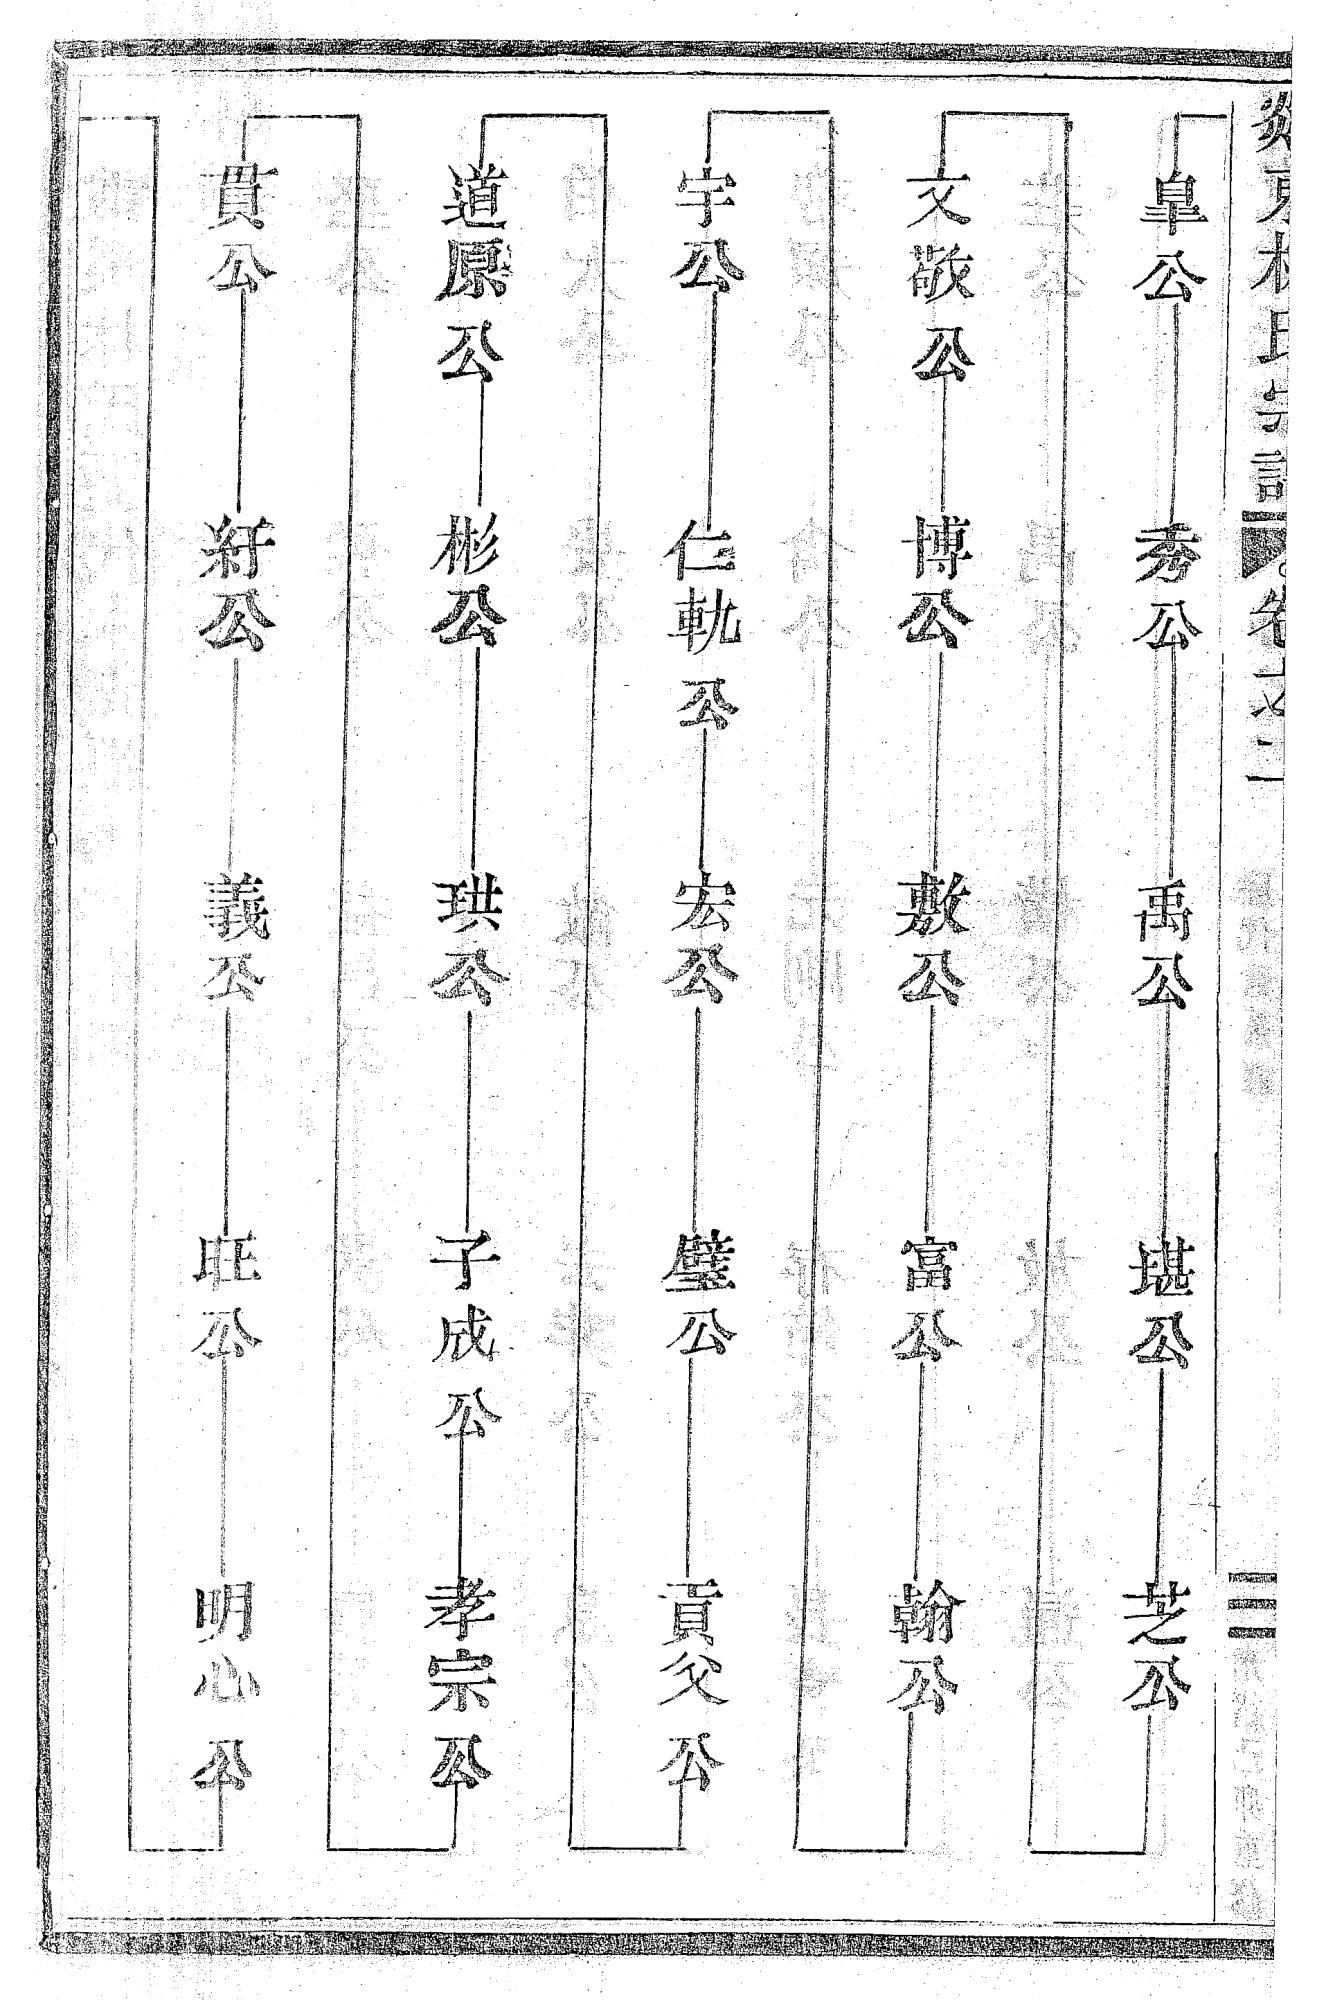 東林氏宗譜卷之二
三
皐公 秀公 禹公 堪公 芝公
文敬公 博公 敷公 富公 翰公
宇公 仁軌公 宏公 璧公 貢父公
道原公 彬公 珙公 子成公 孝宗公
貫公 紆公 義公 旺公 明心公